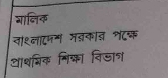 মালিক
বাংলাদেশ সরকার পক্ষে
প্রাথমিক শিক্ষা বিভাগ